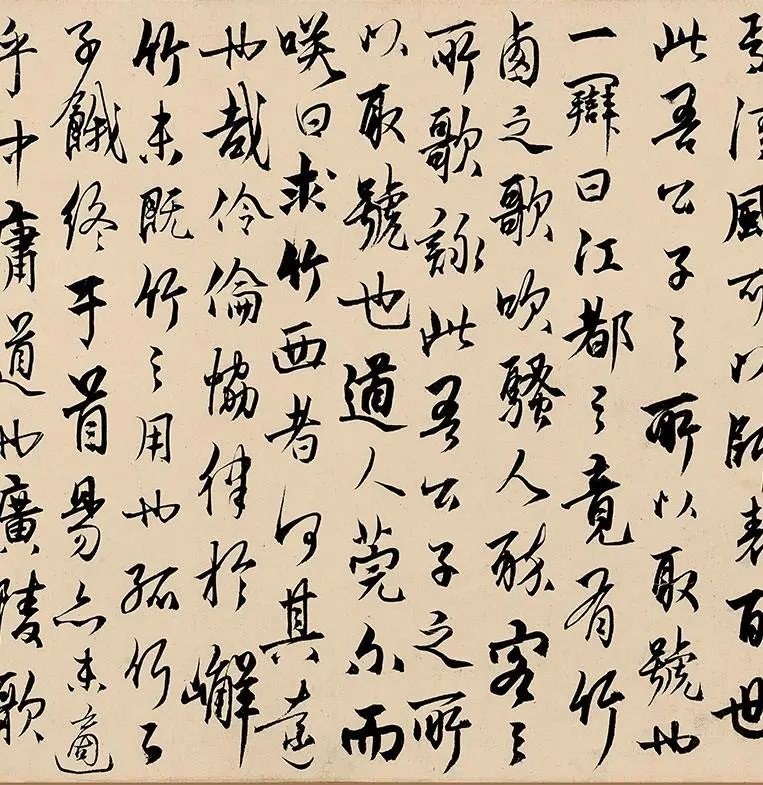 焉清風可以師表百世
此吾公子之所以取號也
一辯曰江都之竟有竹
鹵之歌吹騷人醉客之
所歌詠此吾公子之所
以取號也道人莞尔而
咲曰求竹西者何其遠
也哉伶倫協律於嶰
竹未既竹之用也孤竹之
子餓終于首昜亦未適
乎中庸道也廣陵歌